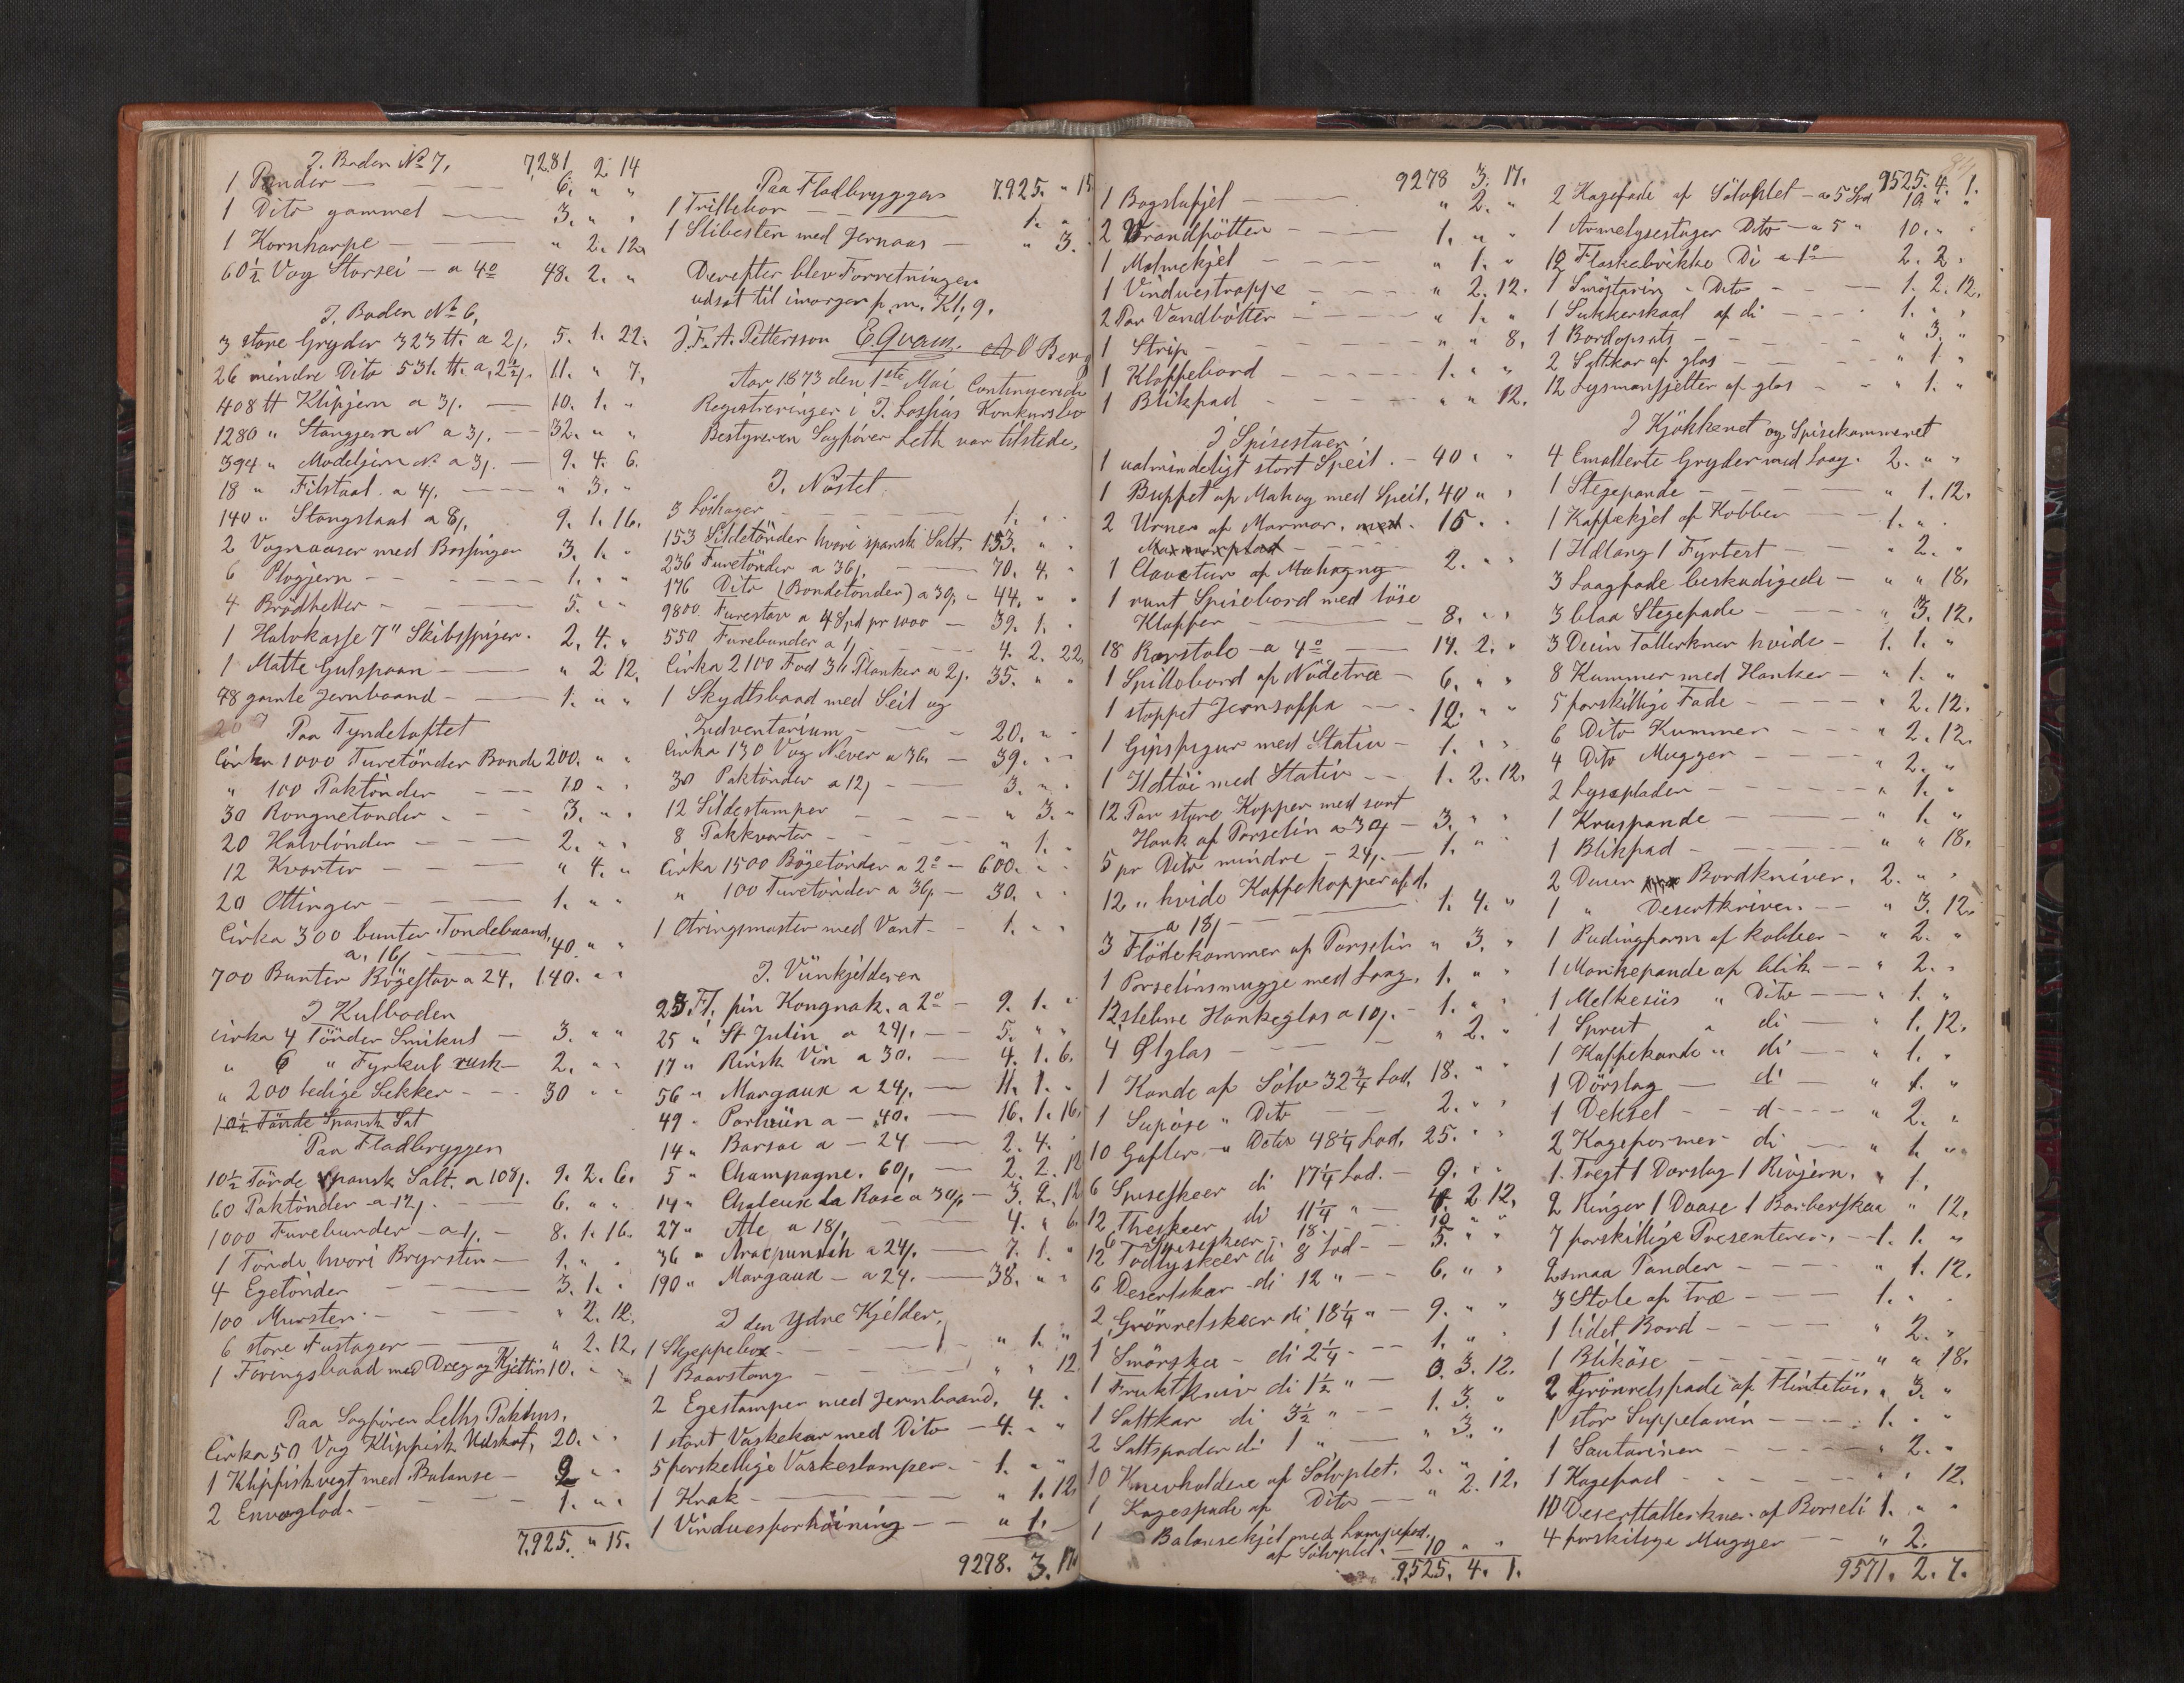 I. Boden No 7, 7281 2 14
1 Pundar — 6. " "
1 Dito gammel — 3. " "
1 Kornharpe — " 2. 12.
60½ Vog Storsei — a 4o 48. 2. "
I. Boden No 6,
3 store Gryder 323 tt. a 2/. 5. 1. 22.
26 mindre Dito 531. tt. a, 2½/. 11. " 7.
408 tt Klipjern a 3/. — 10. 1. "
1280 " Stangjern a 3/. — 32. " "
394 " Modeljern a 3/. — 9. 4. 6.
18 " Filstaal. a 4/. — " 3. "
140 " Stangstaal a 8/. 9. 1. 16.
2 Vognaaser med Bøssinger 3. 1. "
6 Plogjern — 1. " "
4 Brödheller — 5. " "
1 Halvkasse 7" Skibsspiger. 2. 4. "
1 Matte Gulspaan — " 2 12.
48 gamle Jernbaand — 1. " "
Paa Tyndeloftet
Cirka 1000 Furetönder Bonde 200. " "
" 100 Paktönder — 10 " "
30 Rongnetönder — 3. " "
20 Halvtönder — 2. " "
12 Kvarter — " 4. "
20 Ottinger — 1. " "
Cirka 300 bunter Tondebaand,
a. 16/ — 40. " "
700 Bunter Bögestav a 24. 140. " "
I Kulboden
Cirka 4 Tönder Smikul — 3. " "
" 6 " Fyrkul rusk — 2. " "
" 200 ledige Sekker — 30 " "
10½ Tönde Spansk Salt
Paa Fladbryggen
10½ Tönde spansk Salt. a 108/. 9. 2. 6.
60 Paktönder a 12/. — 6. " "
1000 Furebunder — a 1/. — 8. 1. 16.
1 Tönde hvori Brynsten — 1. " "
4 Egetönder — 3. 1. "
100 Mursten — " 2. 12.
6 store Fustager — " 2. 12.
1 Föringsbaad med Dreg og Kjetting 10. " "
Paa Sagförer Leths Pakhus.
Cirka 50 Vog Klippisk Udskot, 20. " "
1 Klippiskvegt med Balanse — 9 " "
2 Envoglod. — 1. " "
7.925. " 15.
Paa Fladbryggen 7.925. " 15
1 Trillebor — 1. " "
1 Slibesten med Jernaas — " 3. "
Derefter blev Forretningen
udsat til imorgen f. m. Kl. 9.
J. F. A. Pettersson E Qvam. A O Berg
Aar 1873 den 1ste Mai Continuerede
Registreringen i J. Lossius Konkursbo
Bestyreren Sagförer Leth var tilstede.
I. Nöstet
3 Löshager — 1. " "
153 Sildetönder hvori spansk Salt, 153. " "
236 Furetönder a 36/. — 70. 4. "
176 Dito (Bondetönder) a 30/. — 44. " "
9800 Furestav a 4 Spd pr 1000 — 39. 1. "
550 Furebunder a 1/ — 4. 2. 22.
Cirka 2100 Fod 3de Planker a 2/. 35. " "
1 Skydtsbaad med Seil og
Indventarium — 20. " "
Cirka 130 Vog Never a 36. — 39. " "
30 Paktönder a 12/ — 3. " "
12 Sildestamper — " 3. "
8 Pakkvarter — " 1. "
Cirka 1500 Bögetönder a 2o — 600. " "
" 100 Furetönder a 36/. — 30. " "
1 Otringsmaster med Vant — 1. " "
I. Viinkjelderen
23 Fl. fin Kongnak. a 2o — 9. 1. "
25 " St Julin a 24/. — 5. " "
17 " Rinsk Vin a 30. — 4. 1. 6.
56 " Margaux a 24/. — 11. 1. "
49 " Portviin a — 40. — 16. 1. 16.
14 " Barsac a — 24 — 2. 4. "
5 " Champagne. 60/. — 2. 2. 12
14 " Chateux La Rose a 30/. — 3. 2. 12
27 " Ale a 18/. — 4. " 6.
36 " Aracpunsch a 24/. — 7. 1. "
190 " Margaux — a 24. — 38. " "
I den Ydre Kjelder.
1 Skjeppebox — " 1. "
1 Baarstong — " " 12
2 Egestamper med Jernbaand, 4. "
1 stort Vaskekar med Dito — 4. " "
5 forskellige Vaskestamper — 1. " "
1 Krak — " 1. 12.
1 Vinduesforhöining — " 1. "
9278. 3. 17.
9278 3. 17.
1 Bagstefjel — " 2. "
2 Brandbötter — 1. " "
1 Malmekjel — " 1. "
1 Vinduestrappe — " 2. 12.
2 Par Vandbötter — " 1. "
1 Strip — " " 8.
1 Kloppebord — 1. " "
1 Blikfad — " " 12.
I Spisestuen
1 ualmindeligt stort Speil. — 40 " "
1 Buffet af Mahog med Speil, 40 " "
2 Urner af Marmor, med — 16. " "
Marmorplad —
1 Clavetur af Mahogny — 2. " "
1 runt Spisebord med löse
Klapper — 8. " "
18 Rorstole — a 4o — 14. 2. "
1 Spillebord af Nödetræ — 6. " "
1 stoppet Jernsoffa — 12. " "
1 Gipsfigur med Stativ — 1. " "
1 Ildtöi med Stativ — 1. 2. 12.
12 Par store Kopper med sort
Hank af Porselin a 30/ — 3. " "
5 pr Dito mindre — 24/. — 1. " "
12 " hvide Kaffekopper af d.
a 18/ — 1. 4. "
3 Flödekummer af Porselin " 3. "
1 Porselinsmugge med Laag, 1. " "
12 slebne Hankeglas a 10/. — 1. " "
4 Ølglas — " 2. "
1 Kande af Sölv 32¾ Lod, 18. " "
1 Supöse " Dito — 2. " "
10 Gafler — " Dito 48¼ Lod, 25. " "
6 Spiseskeer di 17¼ Lod. — 9. " "
12 Theskeer di 11¼ " — 4. 2 12.
6 Spiseskeer — 18. — 10 " "
12 Todlyskeer di 8 Lod — 5. " "
6 Desertskar di 12 " — 6. " "
2 Grönretskeer di 18¼ " — 9. " "
1 Smörskee — di 2¼ — 1. " "
1 Fruktkniv di 1½ " — 0. 3. 12.
1 Saltkar di 3½ " — 1. 3. "
2 Saltspader di 1 " — " 3. "
10 Knivholdere af Sölvplet. 2. " "
1 Kagespade af Dito — " 2. 12.
1 Balansekjel med Lampefod.
af Sölvplet — 10 " "
9,525. 4. 1.
9525. 4. 1.
2 Kagefade af Sölvplet — a 5 Spd 10. " "
1 Armelysestager Dito — a 5 " 10. " "
12 Flaskebrikke Di a 1o 2. 2. "
1 Smöstarin " Dito — 1. 2. 12.
1 Sukkerskaal af di — 1. " "
1 Bordopsats — " 3. "
2 Syltkar af glas — " 1. "
12 Lysmansjetter af glas — " 1. "
I Kjökkenet og Spisekammeret
4 Emallerte Gryder med Laag. 2. " "
1 Stegepande — " 1. 12.
1 Kaffekjel af Kobber — 1. " "
1 Ildtang 1 Fyrtert — " 2. "
3 Laagfade beskadigede — " " 18.
3 blaa Stegefade — " 3. 12.
3 Deusin Tallerkner hvide — 1. 1. "
8 Kummer med Hanker — " 1. "
5 forskellige Fade — " 2. 12.
6 Dito Kummer — " 2. 12.
4 Dito Mugger — " 2. "
2 Lyseplader — " 1. "
1 Kruspande — " 1. "
1 Blikfad — " " 18.
2 Deusin Bordkniver. 2. " "
1 " Desertkniver. — " 3. 12.
1 Pudingform af kobber — " 2. "
1 Monkepande af blik — " 2. "
1 Melkesiis " Dito — " 1. "
1 Sprut " di — " 1. 12.
1 Kaffekande " di — " 1. "
1 Dörslag — di — " 1. "
1 Deksel — d — " 2. "
2 Kageformer di — " 1. "
1. Tregt 1 Dorslag 1 Rivjern. " 1.
2 Ringer 1 Daase 1 Barberskaa " 12.
7 forskellige Presenterer. — 1. 1. "
2 smaa Pander — " 1. 12.
3 Stole af træ — 1. " "
1 lidet Bord — " 2. "
1 Bliköse — " " 18.
2 Grönretsfade af Flintetöi. " 3. "
1 stor Suppeterrin — 1. " "
1 Sauterinen — " 2. "
1 Kagefad — " " 12.
10 Deserttallerkner af Borseli 1. " "
4 forskilige Mugger — " 2.
9571. 2. 7.